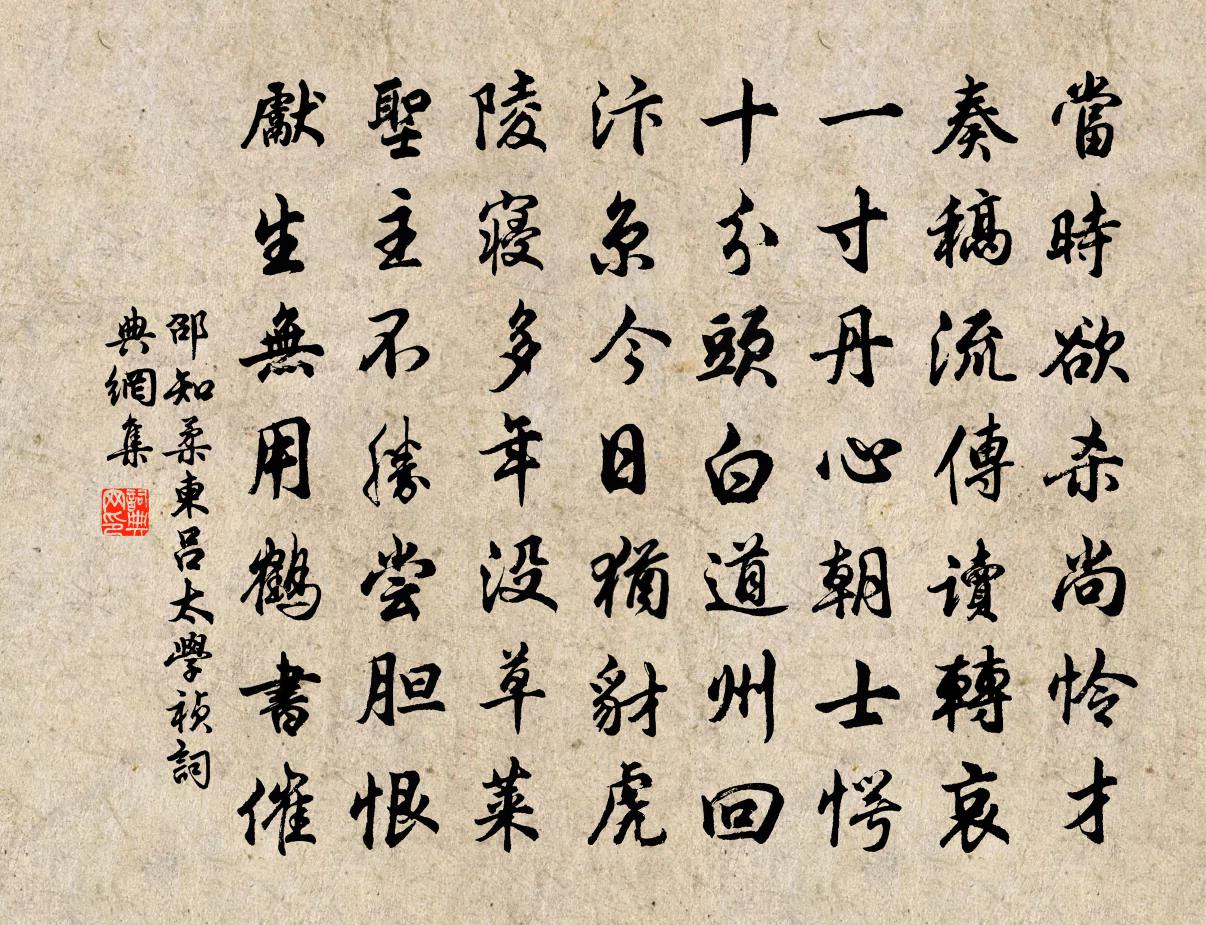 當時欲杀尚怜才
奏稿流傳讀轉哀
一寸丹心朝士愕
十分頭白道州回
汴京今日猶豺虎
陵寝多年没草莱
聖主不勝尝胆恨
獻生無用鶴書催
邵知柔東呂太學祯詞
典網集
詞典
网印